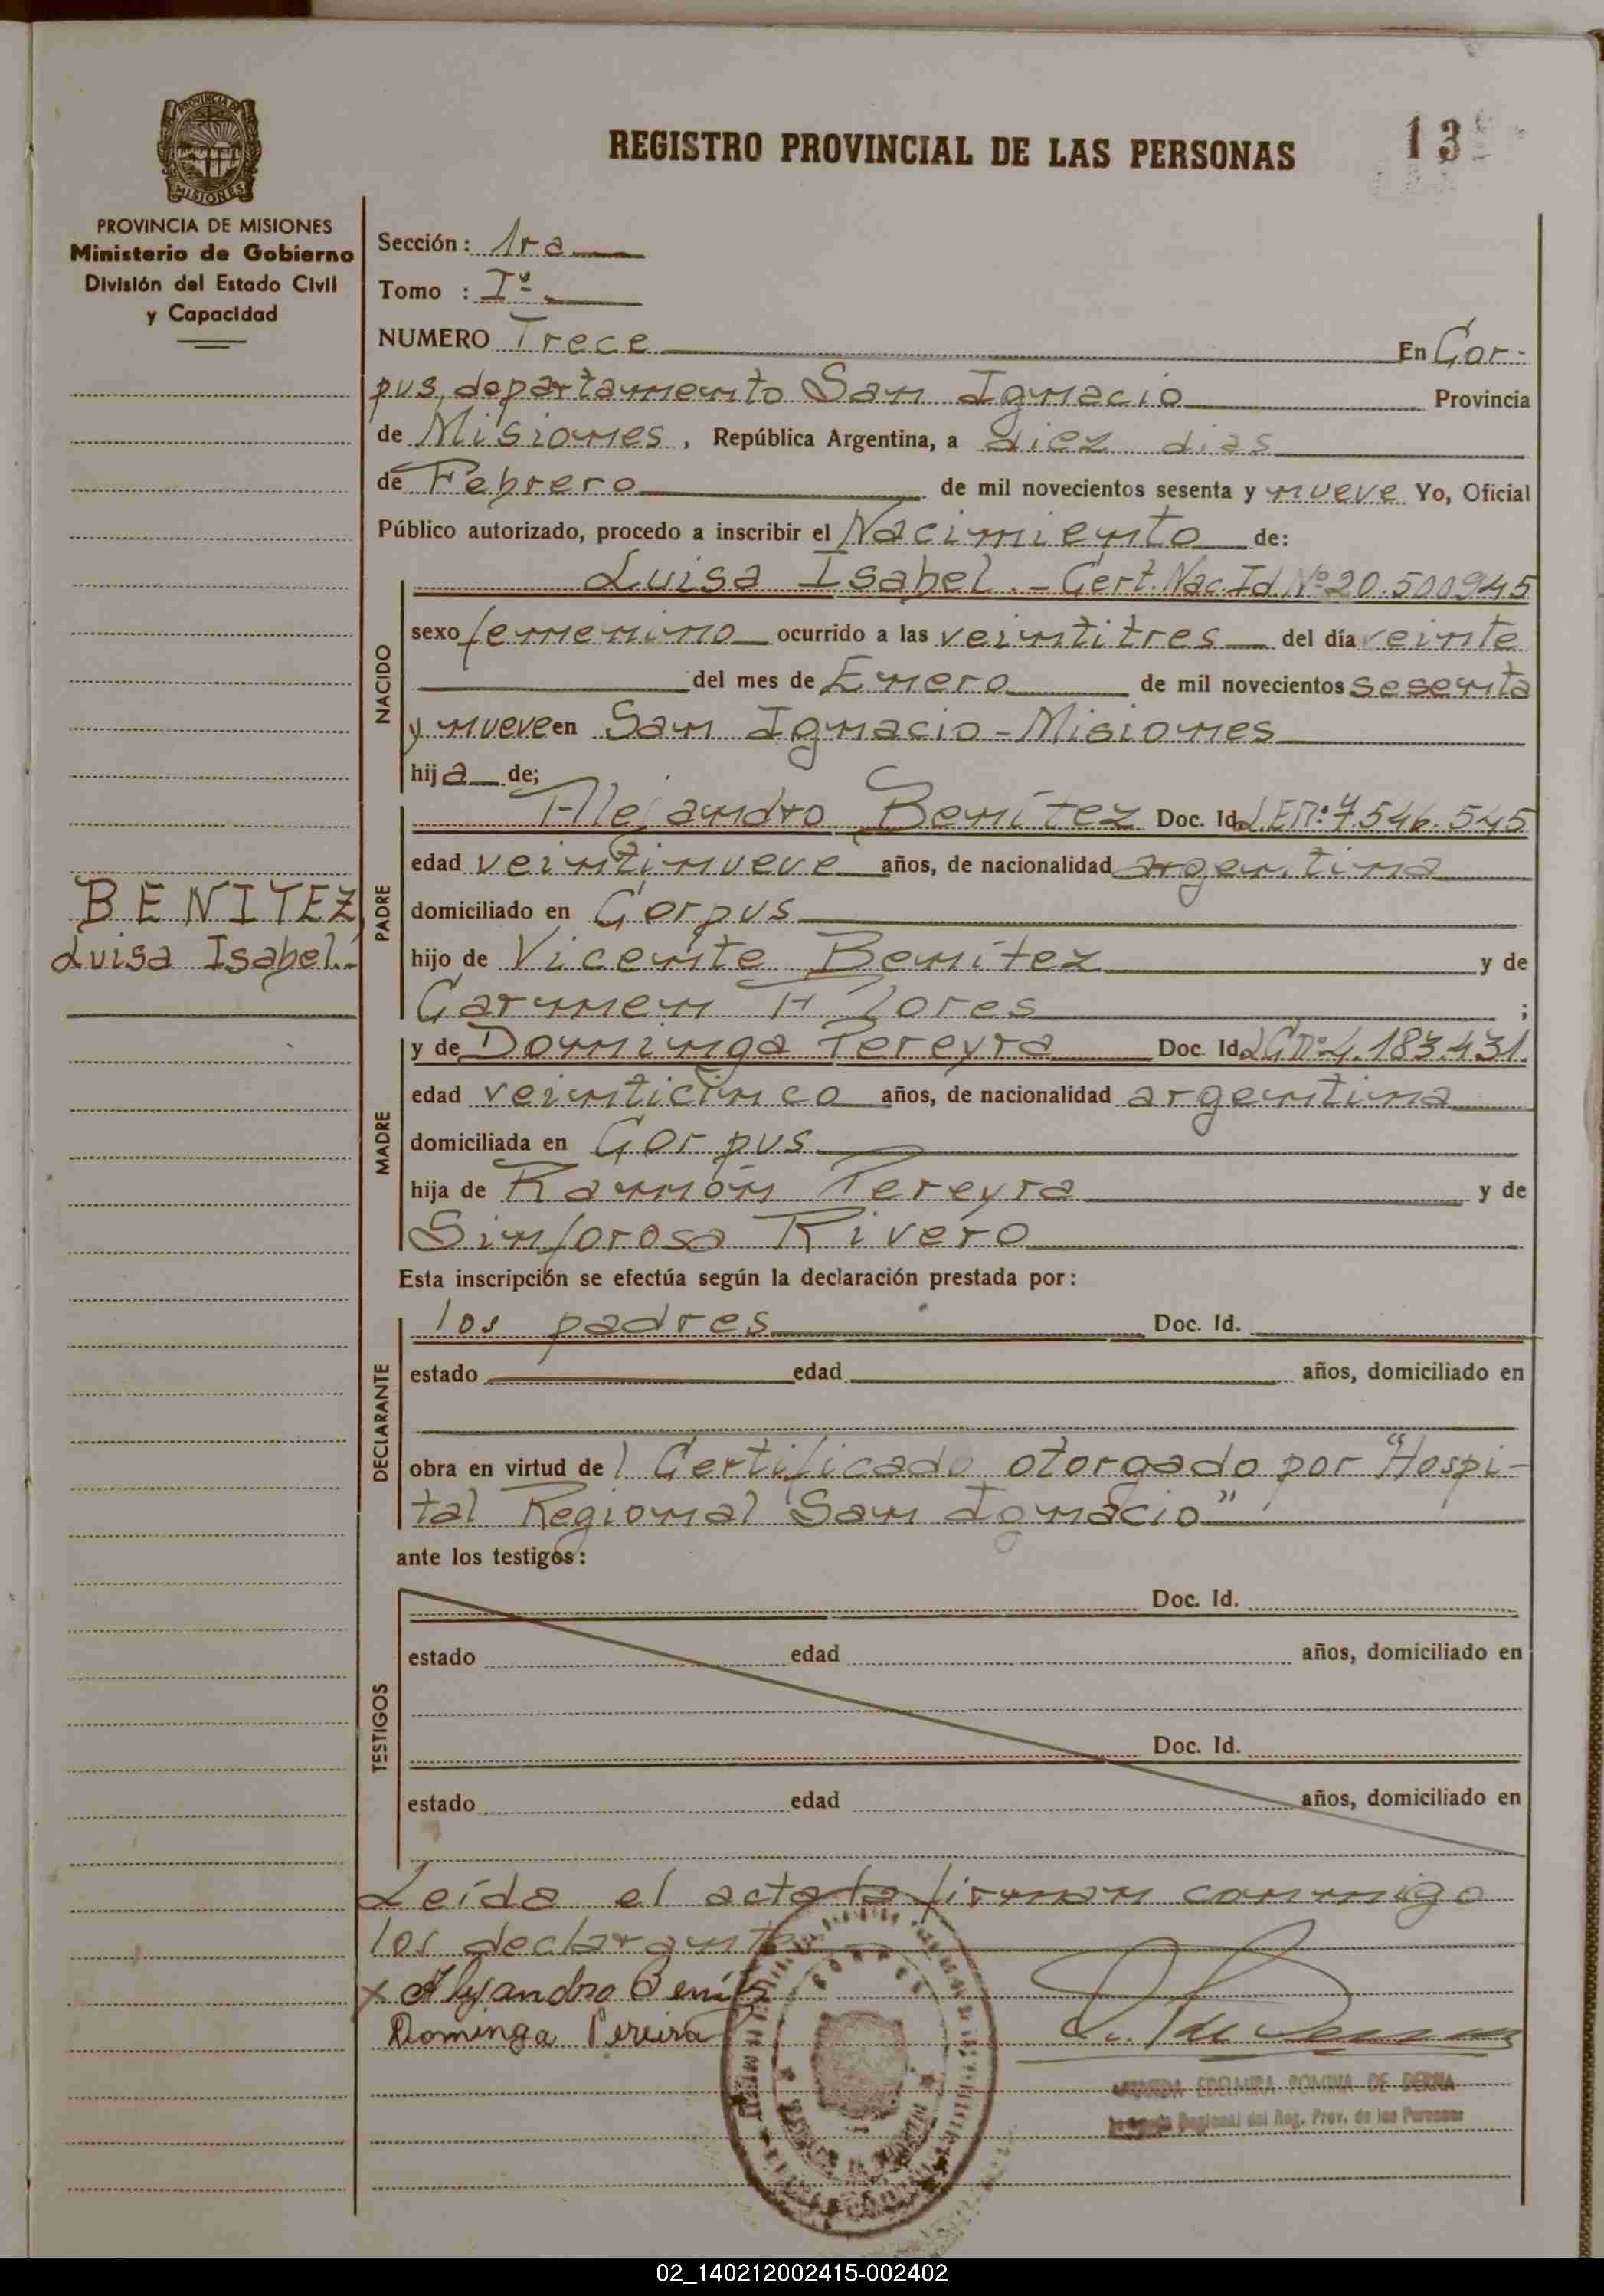 PROVINCIA DE
MISIONES
PROVINCIA DE MISIONES
Ministerio de Gobierno
División del Estado Civil
y Capacidad
BENITEZ
Luisa Isabel.-
REGISTRO PROVINCIAL DE LAS PERSONAS
13
Sección: 1ra
Tomo : Iº
NUMERO Trece En Cor-
pus, departamento San Ignacio Provincia
de Misiones, República Argentina, a diez dias
de Febrero de mil novecientos sesenta y nueve Yo, Oficial
Público autorizado, procedo a inscribir el Nacimiento de:
NACIDO
Luisa Isabel.- Cert. Nac. Id. Nº 20.500945
sexo femenino ocurrido a las veintitres del día veinte
del mes de Enero de mil novecientos sesenta
y nueve en San Ignacio - Misiones
hija de;
PADRE
Alejandro Benítez Doc. Id. LENº: 7.546.545
edad veintinueve años, de nacionalidad argentina
domiciliado en Corpus
hijo de Vicente Benítez y de
Carmen Flores ;
MADRE
y de Dominga Pereyra Doc. Id. LCNº 4.183.431
edad veinticinco años, de nacionalidad argentina
domiciliada en Corpus
hija de Ramón Pereyra y de
Sinforosa Rivero
Esta inscripción se efectúa según la declaración prestada por:
DECLARANTE
los padres Doc. Id.
estado edad años, domiciliado en
obra en virtud de 1 Certificado otorgado por "Hospi-
tal Regional San Ignacio"
ante los testigos:
TESTIGOS
Doc. Id.
estado edad años, domiciliado en
Doc. Id.
estado edad años, domiciliado en
Leída el acta la firman conmigo
los declarantes
x Alejandro Benítez
Dominga Pereira
EDELMIRA ROMINA DE
Regional del Reg. Prov. de las Personas
02_140212002415-002402